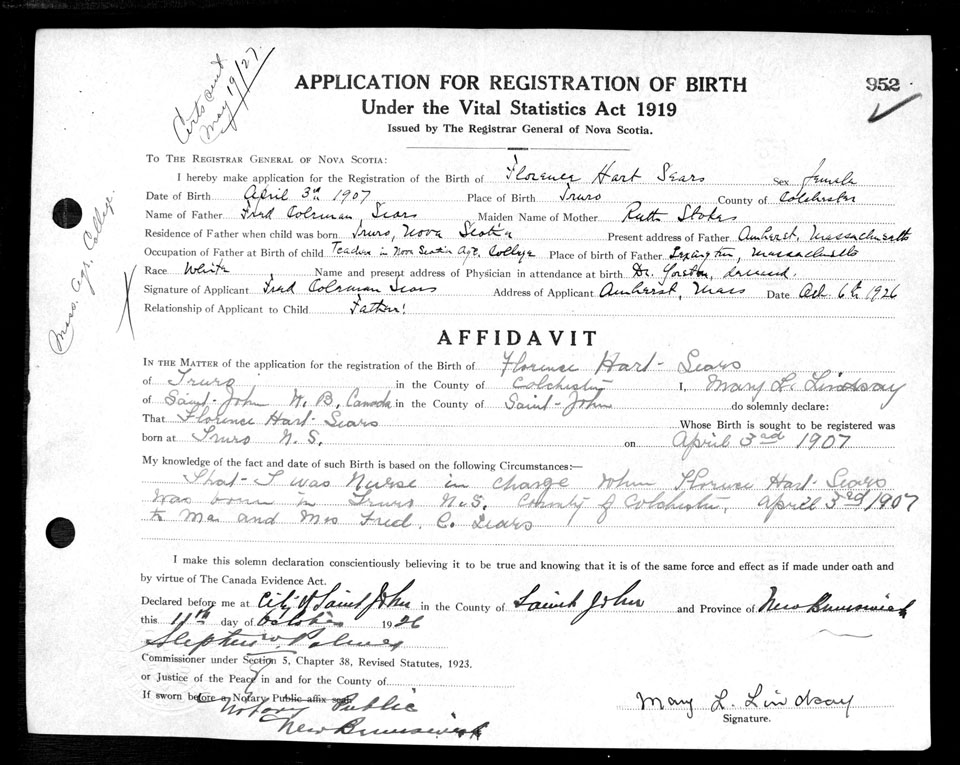 Certs sent
May 19/27.
APPLICATION FOR REGISTRATION OF BIRTH
952
Under the Vital Statistics Act 1919
Issued by The Registrar General of Nova Scotia.
TO THE REGISTRAR GENERAL OF NOVA SCOTIA:
I hereby make application for the Registration of the Birth of Florence Hart Sears Sex female
Date of Birth April 3rd 1907 Place of Birth Truro County of Colchester
Name of Father Fred Coleman Sears Maiden Name of Mother Ruth Stokes
Residence of Father when child was born Truro, Nova Scotia Present address of Father Amherst, Massachusetts
Occupation of Father at Birth of child Teacher in Nova Scotia Agr. College Place of birth of Father Lexington, Massachusetts
Race White Name and present address of Physician in attendance at birth Dr. Yorston, deceased.
Signature of Applicant Fred Coleman Sears Address of Applicant Amherst, Mass Date Oct 6th 1926
Relationship of Applicant to Child Father!
Mass. Agr. College
AFFIDAVIT
IN THE MATTER of the application for the registration of the Birth of Florence Hart-Sears
of Truro in the County of Colchester I, Mary L. Lindsay
of Saint-John N.B. Canada in the County of Saint-John do solemnly declare:
That Florence Hart-Sears Whose Birth is sought to be registered was
born at Truro N.S. on April 3rd 1907
My knowledge of the fact and date of such Birth is based on the following Circumstances:—
That-I was Nurse in charge when Florence Hart-Sears
was born in Truro N.S. County of Colchester, April 3rd 1907
to Mr. and Mrs Fred. C. Sears
I make this solemn declaration conscientiously believing it to be true and knowing that it is of the same force and effect as if made under oath and
by virtue of The Canada Evidence Act.
Declared before me at City of Saint John in the County of Saint John and Province of New Brunswick
this 11th day of October 1926
Stephen W. Palmer
Commissioner under Section 5, Chapter 38, Revised Statutes, 1923.
or Justice of the Peace in and for the County of
If sworn before a Notary Public affix seal
Notary Public
New Brunswick
Mary L. Lindsay
Signature.